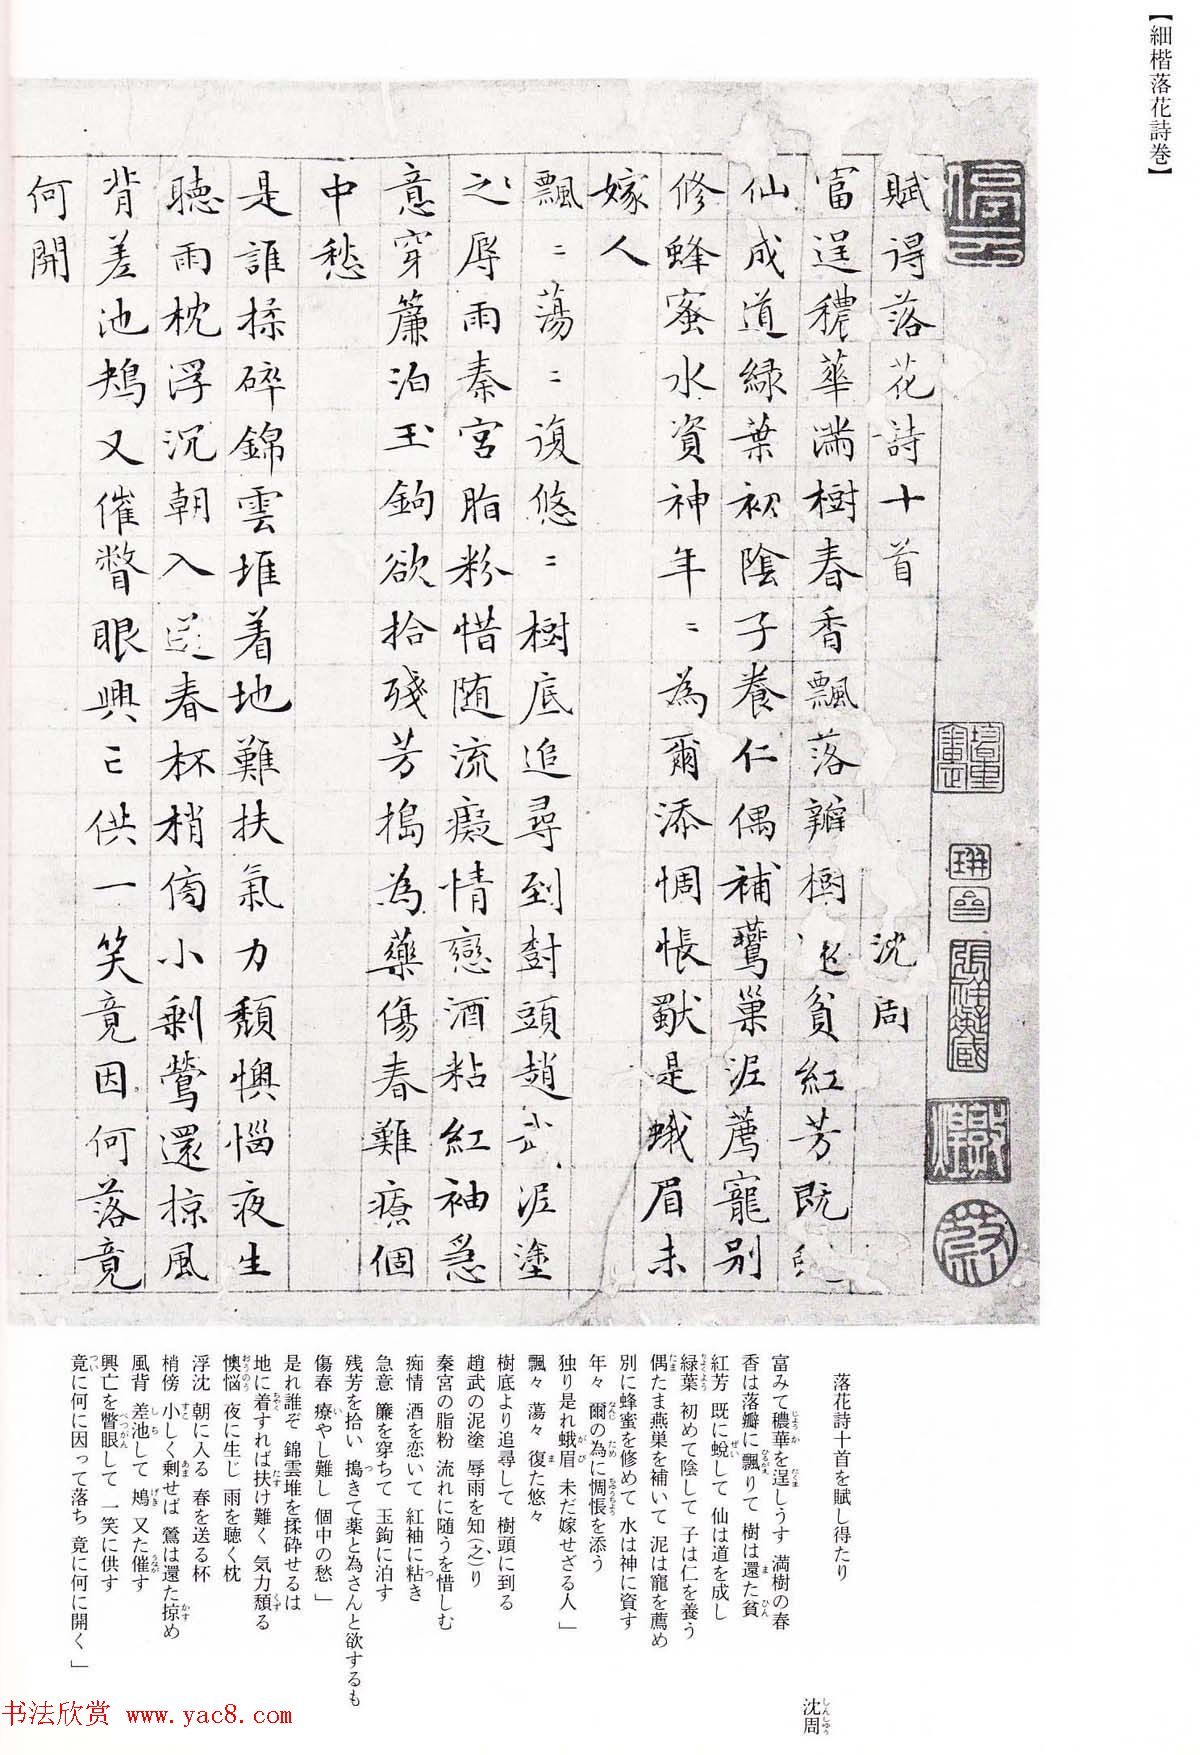 【細楷落花詩巻】
賦得落花詩十首 沈周
富逞穠華滿樹春香飄落瓣樹還貧紅芳既蛻
仙成道綠葉初陰子養仁偶補鷰巢泥薦寵別
修蜂蜜水資神年〻為爾添惆悵獸是蛾眉未
嫁人
飄〻蕩〻復悠〻樹底追尋到樹頭趙武泥塗
之辱雨秦宮脂粉惜随流癡情戀酒粘紅袖急
意穿簾泊玉鉤欲拾殘芳搗為藥傷春難療個
中愁
是誰揉碎錦雲堆着地難扶氣力頹懊惱夜生
聽雨枕浮沉朝入送春杯梢傍小剩鶯還掠風
背差池鴂又催瞥眼興亡供一笑竟因何落竟
何開
落花詩十首を賦し得たり
沈周
しんしゅう
富みて穠華を逞しうす 満樹の春
香は落瓣に飄りて 樹は還た貧
紅芳 既に蛻して 仙は道を成し
緑葉 初めて陰して 子は仁を養う
偶たま燕巣を補いて 泥は寵を薦め
別に蜂蜜を修めて 水は神に資す
年々 爾の為に惆悵を添う
独り是れ蛾眉 未だ嫁せざる人」
飄々 蕩々 復た悠々
樹底より追尋して 樹頭に到る
趙武の泥塗 辱雨を知(之)り
秦宮の脂粉 流れに随うを惜しむ
痴情 酒を恋いて 紅袖に粘き
急意 簾を穿ちて 玉鉤に泊す
残芳を拾い 搗きて薬と為さんと欲するも
傷春 療やし難し 個中の愁」
是れ誰ぞ 錦雲堆を揉砕せるは
地に着すれば扶け難く 気力頽る
懊悩 夜に生じ 雨を聴く枕
浮沈 朝に入る 春を送る杯
梢傍 小しく剰せば 鶯は還た掠め
風背 差池して 鴂 又た催す
興亡を瞥眼して 一笑に供す
竟に何に因って落ち 竟に何に開く」
书法欣赏 www.yac8.com